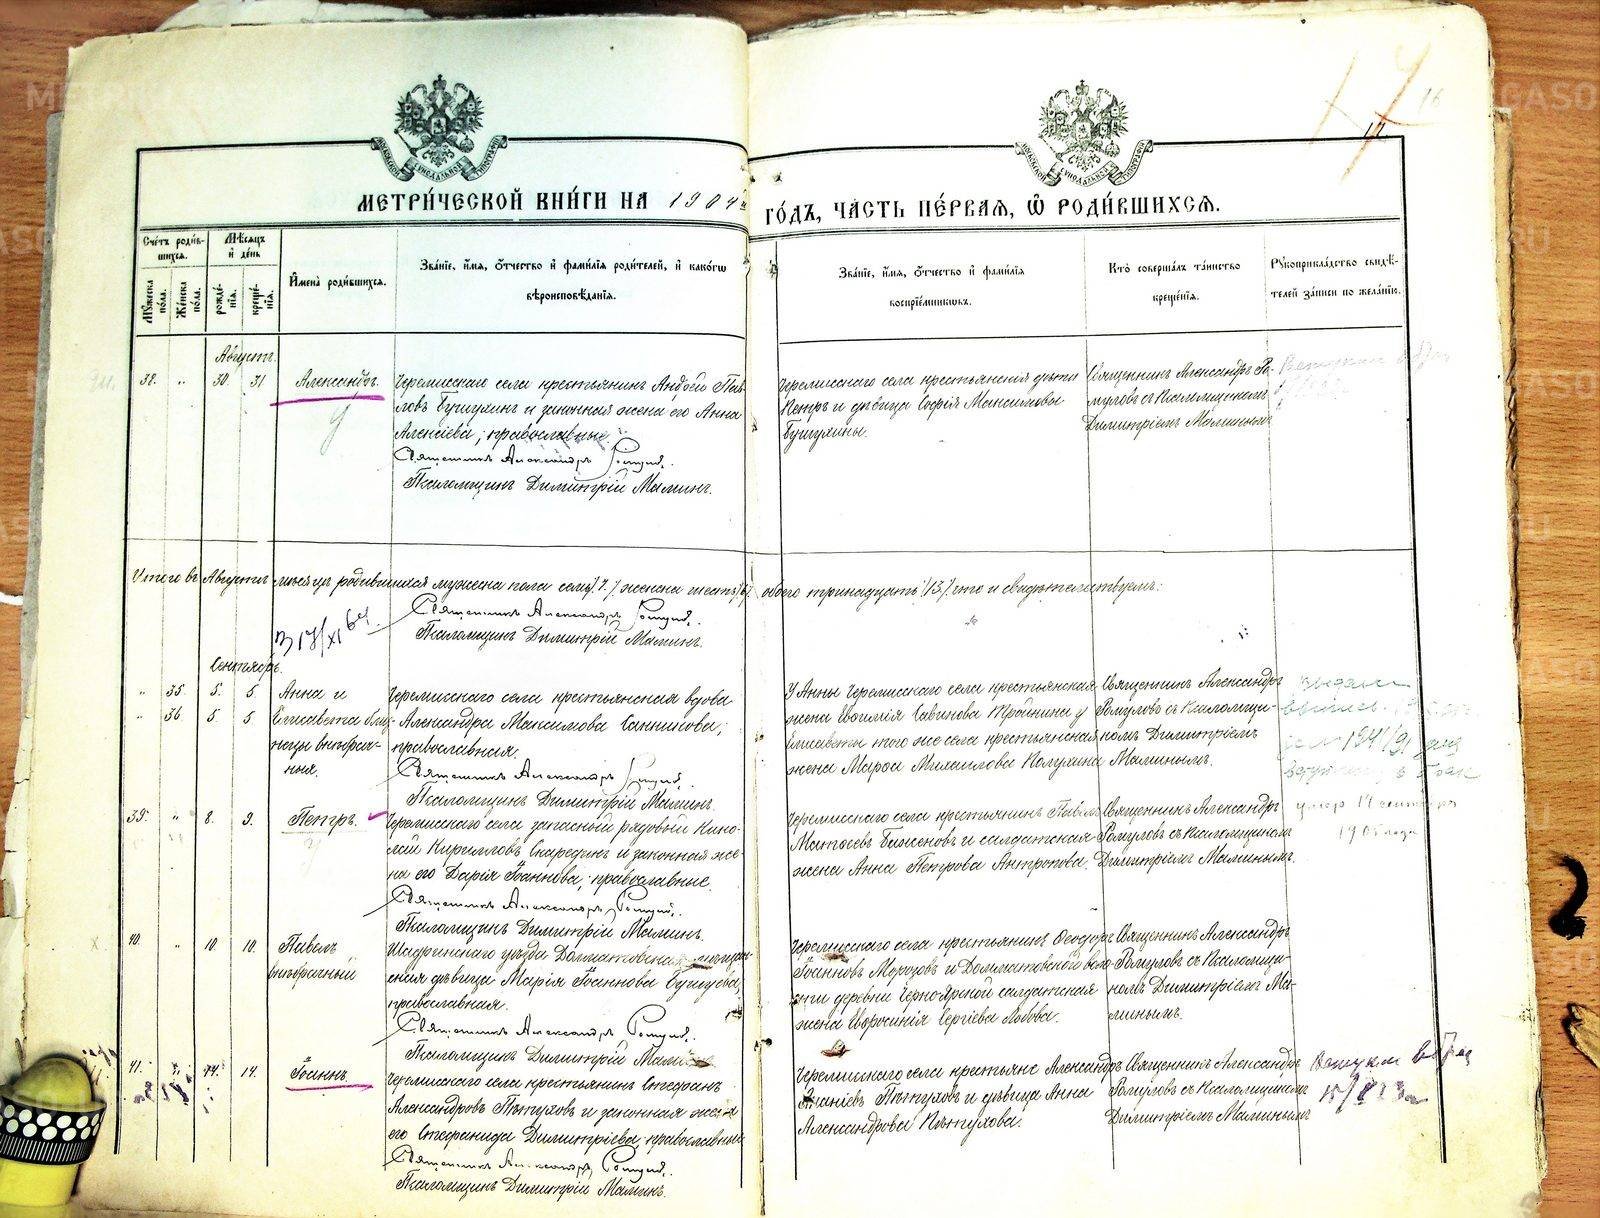 МЕТРИ́ЧЕСКОЙ КНИ́ГИ НА 1904й ГО́ДЪ, ЧА́СТЬ ПЕ́РВАЯ, Ѽ РОДИ́ВШИХСѦ.
Сче́тъ роди́в-
шихся.
Мѣ́сяцъ
и҆ де́нь
Мꙋ́жеска по́ла.
Же́нска по́ла.
рожде́-нїѧ.
креще́-нїѧ.
И҆мена̀ роди́вшихсѧ.
Зва́нїе, и҆́мѧ, ѻ҆́тчество и҆ фами́лїѧ роди́телей, и҆ како́гѡ
вѣроисповѣ́данїѧ.
Зва́нїе, и҆́мѧ, ѻ҆́тчество и҆ фами́лїѧ
воспрїе́мникѡвъ.
Кто̀ соверша́лъ та́инство
креще́нїѧ.
Рꙋкоприкла́дство свидѣ́-
телей за́писи по жела́нїю.
Августъ.
38. " 30. 31 Александръ.
Черемисскаго села крестьянинъ Андрей Пав-
ловъ Бушухинъ и законная жена его Анна
Алексіева, православные.
Священникъ Александръ Ромулов.
Псаломщикъ Димитрій Маминъ.
Черемисскаго села крестьянскія дѣти
Петръ и дѣвица Софія Максимовы
Бушухины.
Священникъ Александръ Ро-
муловъ съ псаломщикомъ
Димитріемъ Маминымъ
Итого въ Августѣ мѣсяцѣ родившихся мужеска пола семь /7/ женска шесть /6/ обоего тринадцать /13/ что и свидѣтельствуемъ:
Священникъ Александръ Ромулов.
Псаломщикъ Димитрій Маминъ.
17/XI 64.
Сентябрь.
" 35. 5. 5 Анна и
" 36 5. 5 Елисавета близ-
нецы внебрач-
ныя.
Черемисскаго села крестьянская вдова
Александра Максимова Санникова,
православная.
Священникъ Александръ Ромулов.
Псаломщикъ Димитрій Маминъ.
У Анны Черемисскаго села крестьянская
жена Евфимія Саввинова Тройнина у
Елисаветы того же села крестьянская
жена Марфа Михаилова Полухина
Священникъ Александръ
Ромуловъ съ псаломщи-
комъ Димитріемъ
Маминымъ.
39. " 8. 9. Петръ.
Черемисскаго села запасный рядовой Нико-
лай Кирилловъ Скарединъ и законная же-
на его Дарія Іоаннова, православные.
Священникъ Александръ Ромулов.
Псаломщикъ Димитрій Маминъ.
Черемисскаго села крестьянинъ Павелъ
Матѳеевъ Баженовъ и солдатская
жена Анна Петрова Антропова.
Священникъ Александръ
Ромуловъ съ псаломщикомъ
Димитріемъ Маминымъ.
40. " 10. 10. Павелъ
внебрачный
Шадринскаго уѣзда Долматовская
дѣвица Марія Іоаннова
православная.
Священникъ Александръ Ромулов.
Псаломщикъ Димитрій Маминъ
Черемисскаго села крестьянинъ Ѳеодоръ
Іоанновъ Морозовъ и Долматовской воло-
сти деревни Черноярской солдатская
жена Евфросинія Сергіева
Священникъ Александръ
Ромуловъ съ псаломщи-
комъ Димитріемъ Ма-
минымъ.
41. " 14. 14. Іоаннъ.
Черемисскаго села крестьянинъ Стефанъ
Александровъ Пѣтуховъ и законная жена
его Стефанида Димитріева, православные
Священникъ Александръ Ромулов.
Псаломщикъ Димитрій Маминъ.
Черемисскаго села крестьяне Александръ
Ананіевъ Пѣтуховъ и дѣвица Анна
Александрова Пѣтухова.
Священникъ Александръ
Ромуловъ съ псаломщикомъ
Димитріемъ Маминымъ